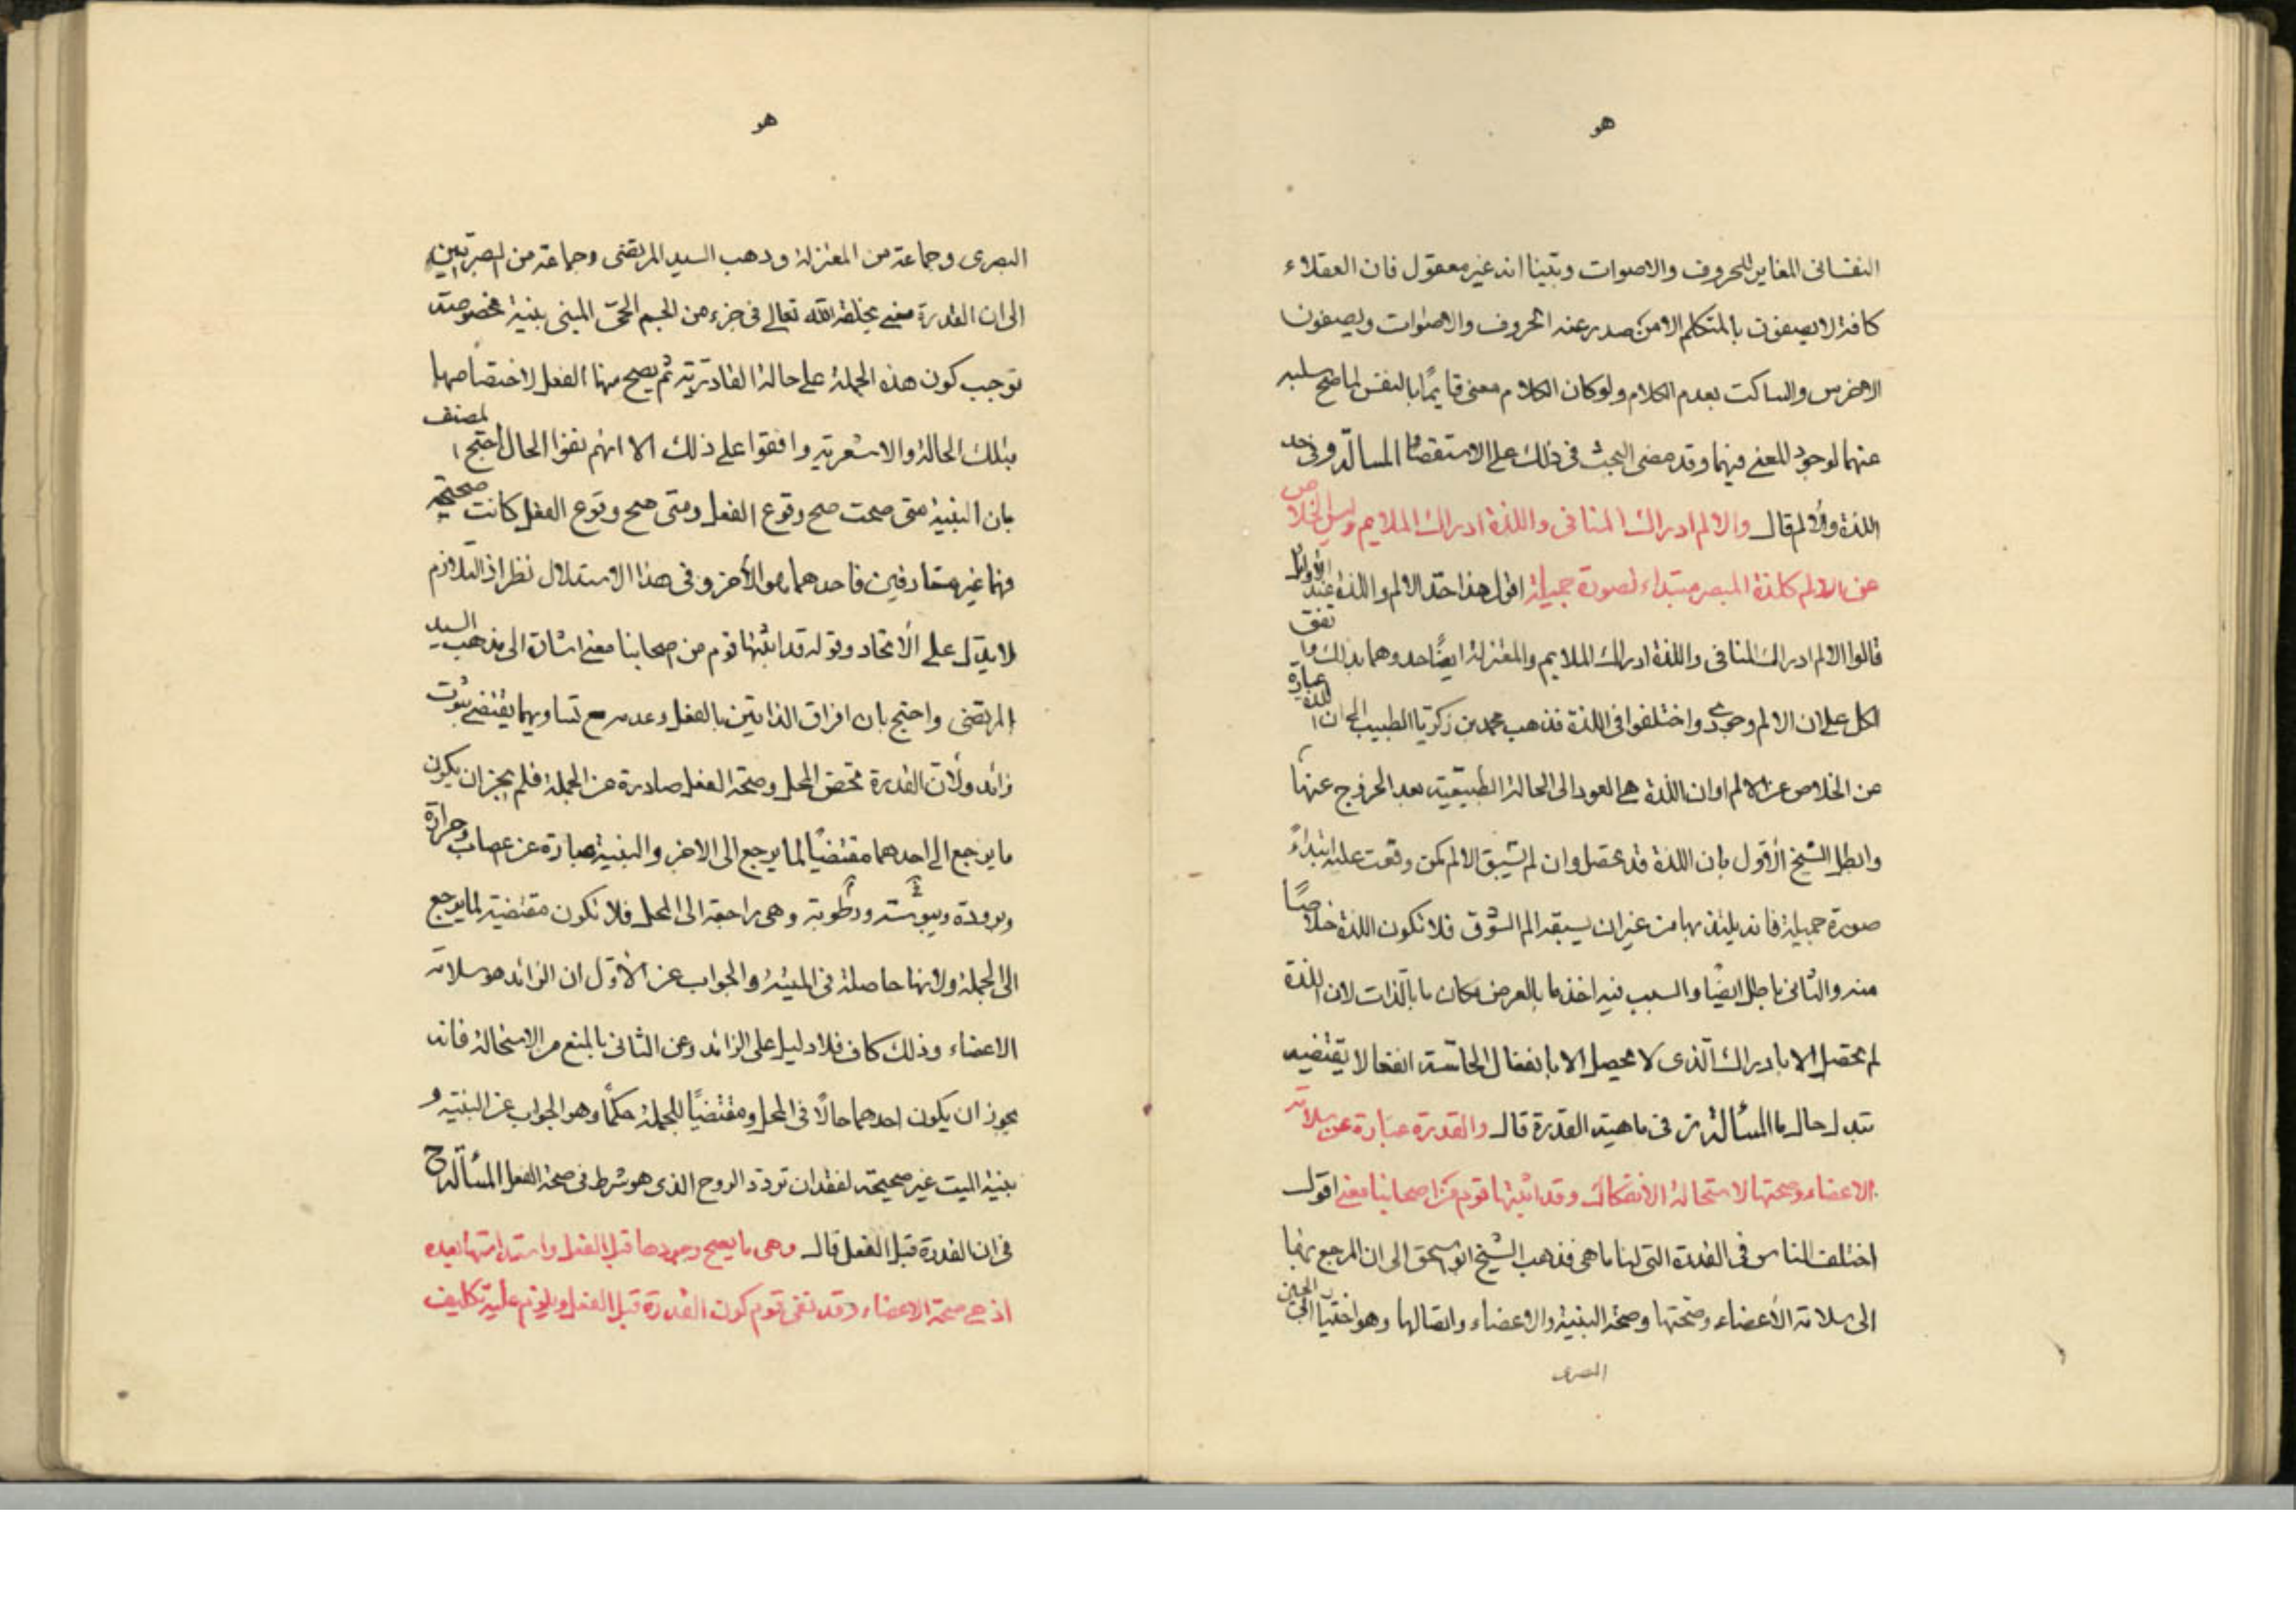 هو
النفسانى المغاير للحروف والاصوات وبينا انه غير معقول فان العقلاء
كافة لا يصفون بالمتكلم الا من صدر عنه الحروف والاصوات ويصفون
الاخرس والساكت بعدم الكلام ولو كان الكلام معنى قايمًا بالنفس لما صح سلبه
عنهما لوجود المعنى فيهما وقد مضى البحث فى ذلك على الاستقصاء المسألة و فى حد
اللذة والالم قال والالم ادراك المنافى واللذة ادراك الملايم وليس الخلاص
عن الالم كلذة المبصر مبتداء لصورة جميلة اقول هذا حد الالم واللذة عند الاوائل
قالوا الالم ادراك المنافى واللذة ادراك الملايم والمعتزلة ايضًا حدوهما بذلك واتفق
الكل على ان الالم وجودى واختلفوا فى اللذة فذهب محمد بن زكريا الطبيب الى ان اللذة عبارة
عن الخلاص عن الالم او ان اللذة هى العود الى الحالة الطبيعية بعد الخروج عنها
وابطل الشيخ الأول بان اللذة قد تحصل وان لم يسبق الالم كمن وقعت عليه ابتداءً
صورة جميلة فانه يلتذ بها من غير ان يسبقه الم الشوق فلا تكون اللذة خلاصًا
منه والثانى باطل ايضًا والسبب فيه اخذ ما بالعرض مكان ما بالذات لان اللذة
لم تحصل الا بادراك الذى لا يحصل الا بانفعال الحاسة انفعالا يقتضيه
تبدل حال ما المسألة ز فى ماهية القدرة قال والقدرة عبارة عن سلامة
الاعضاء وصحتها لاستحالة الانفكاك وقد اثبتها قوم من اصحابنا معنى اقول
اختلف الناس فى القدرة التى لنا ما هى فذهب الشيخ ابو اسحق الى ان المرجع بها
الى سلامة الأعضاء وصحتها وصحة البنية والاعضاء واتصالها وهو اختيار ابى الحسين
البصرى
هو
البصرى وجماعة من المعتزلة وذهب السيد المرتضى وجماعة من البصريين
الى ان القدرة معنى يخلقه الله تعالى فى جزء من الجسم الحىّ المبنى بنية مخصوصة
توجب كون هذه الجملة على حالة القادرية ثم يصح منها الفعل لاختصاصها
بتلك الحالة والاشعرية وافقوا على ذلك الا انهم نفوا الحال احتج المصنف
بان البنية متى صحت صح وقوع الفعل ومتى صح وقوع الفعل كانت صحيحة
فهما غير متفارقين فاحدهما هو الأخر وفى هذا الاستدلال نظر اذ التلازم
لا يدل على الاتحاد وقوله قد اثبتها قوم من اصحابنا معنى اشارة الى مذهب السيد
المرتضى واحتج بان افراق الذاتين بالفعل وعدمه مع تساويهما يقتضى ثبوت
زائد ولان القدرة تختص المحل وصحة الفعل صادرة عن الجملة فلم يجز ان يكون
ما يرجع الى احدهما مقتضيًا لما يرجع الى الاخر والبنية عبارة عن اعصاب وحرارة
وبرودة ويبوسة ورطوبة وهى راجعة الى المحل فلا تكون مقتضية لما يرجع
الى الجملة ولانها حاصلة فى الميت والجواب عن الأول ان الزائد هو سلامة
الاعضاء وذلك كاف فلا دليل على الزائد وعن الثانى بالمنع من الاستحالة فانه
يجوز ان يكون احدهما حالًا فى المحل ومقتضيًا للجملة حكمًا وهو الجواب عن البنية و
بنية الميت غير صحيحة لفقدان تردد الروح الذى هو شرط فى صحة الفعل المسألة ح
فى ان القدرة قبل الفعل قال وهى ما يصح وجودها قبل الفعل واستدامتها بعده
اذ هى صحة الاعضاء وقد نفى قوم كون القدرة قبل الفعل ويلزم عليه تكليف